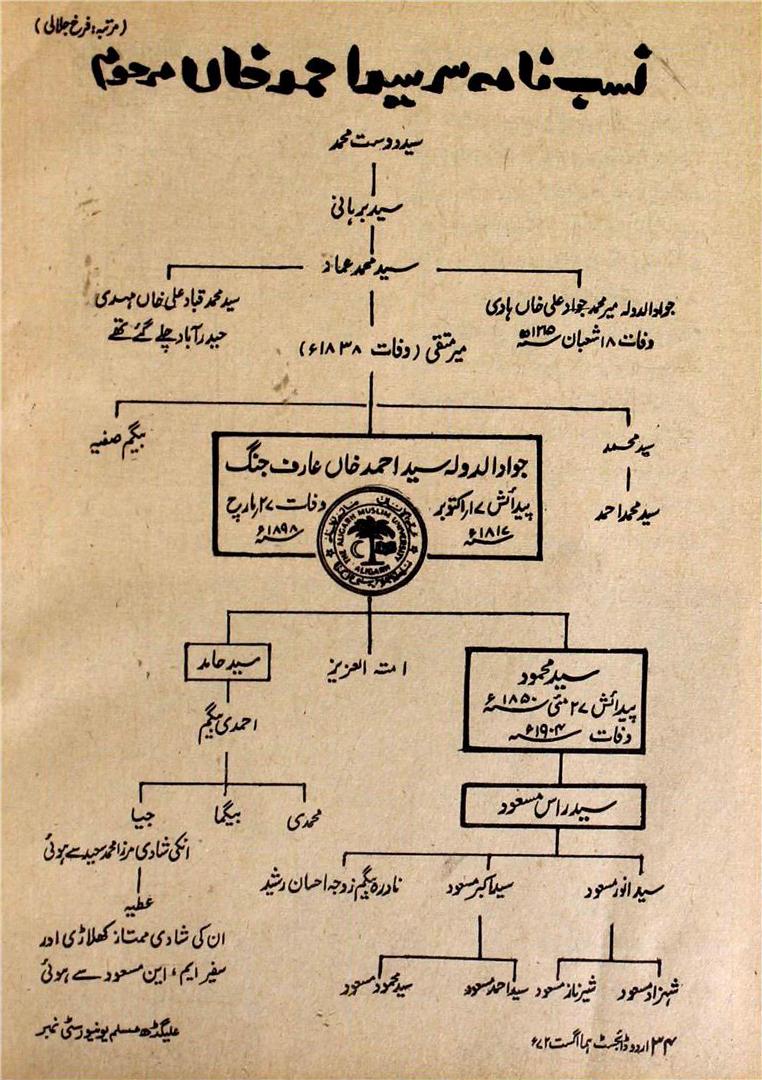 (مرتبہ: فرخ جلالی)
نسب نامہ سر سید احمد خاں مرحوم
سید دوست محمد
سید برہانی
سید محمد عماد
جواد الدولہ میر محمد جواد علی خاں ہادی
وفات ۱۸ شعبان
سید محمد قباد علی خاں مہدی
حیدرآباد چلے گئے تھے
میر متقی (وفات ۱۸۳۸ء)
سید محمد
بیگم صفیہ
سید محمد احمد
جواد الدولہ سید احمد خاں عارف جنگ
پیدائش ۱۷ اکتوبر ۱۸۱۷ء
وفات ۲۷ مارچ ۱۸۹۸ء
THE ALIGARH MUSLIM UNIVERSITY
ALIGARH
سید محمود
پیدائش ۲۷ مئی ۱۸۵۰ء
وفات ۱۹۰۳ء
امتہ العزیز
سید حامد
احمدی بیگم
محمدی
بیگما
جیا
انکی شادی مرزا محمد سعید سے ہوئی
عطیہ
ان کی شادی ممتاز کھلاڑی اور
سفیر ایم، این مسعود سے ہوئی
سید راس مسعود
سید انور مسعود
سید اکبر مسعود
نادرہ بیگم زوجہ احسان رشید
شہزاد مسعود
شیرناز مسعود
سید احمد مسعود
سید محمود مسعود
۳۴ اردو ڈائجسٹ ہما اگست ۷۲ء
علیگڈھ مسلم یونیورسٹی نمبر